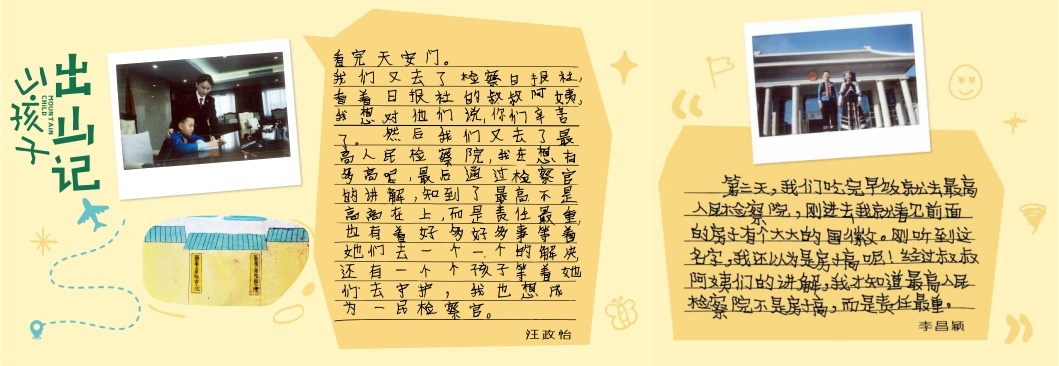 山孩子
MOUNTAIN CHILD
出山记
看完天安门。
我们又去了检察日报社,
看着日报社的叔叔阿姨,
我想对他们说,你们辛苦
了。然后我们又去了最
高人民检察院,我在想有
多高呢,最后通过检察官
的讲解,知到了最高不是
高高在上,而是责任最重,
也有着好多好多事等着
她们去一个一个的解决,
还有一个个孩子等着她
们去守护,我也想成
为一民检察官。
汪政怡
第二天,我们吃完早饭就去最高
人民检察院,刚进去我就看见前面
的房子有个大大的国徽。刚听到这
名字,我还以为是房子高呢!经过叔叔
阿姨们的讲解,我才知道最高人民
检察院不是房子高,而是责任最重。
李昌颖